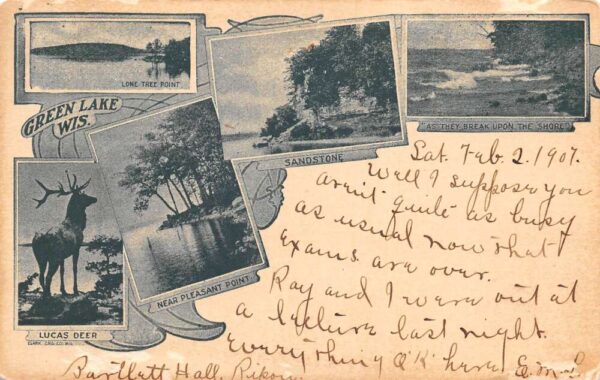 LONE TREE POINT
GREEN LAKE
WIS.
SANDSTONE
"AS THEY BREAK UPON THE SHORE"
NEAR PLEASANT POINT
LUCAS DEER
Sat. Feb. 2. 1907.
Well I suppose you
arent quite as busy
as usual now that
Exams are over.
Ray and I were out at
a lecture last night.
Everything O'K' here. E.M.B
Bartlett Hall, Ripon.